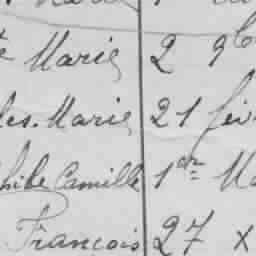 Marie 2 9b
les. Marie 21 fév
hile Camille 1er Ma
François 27 x